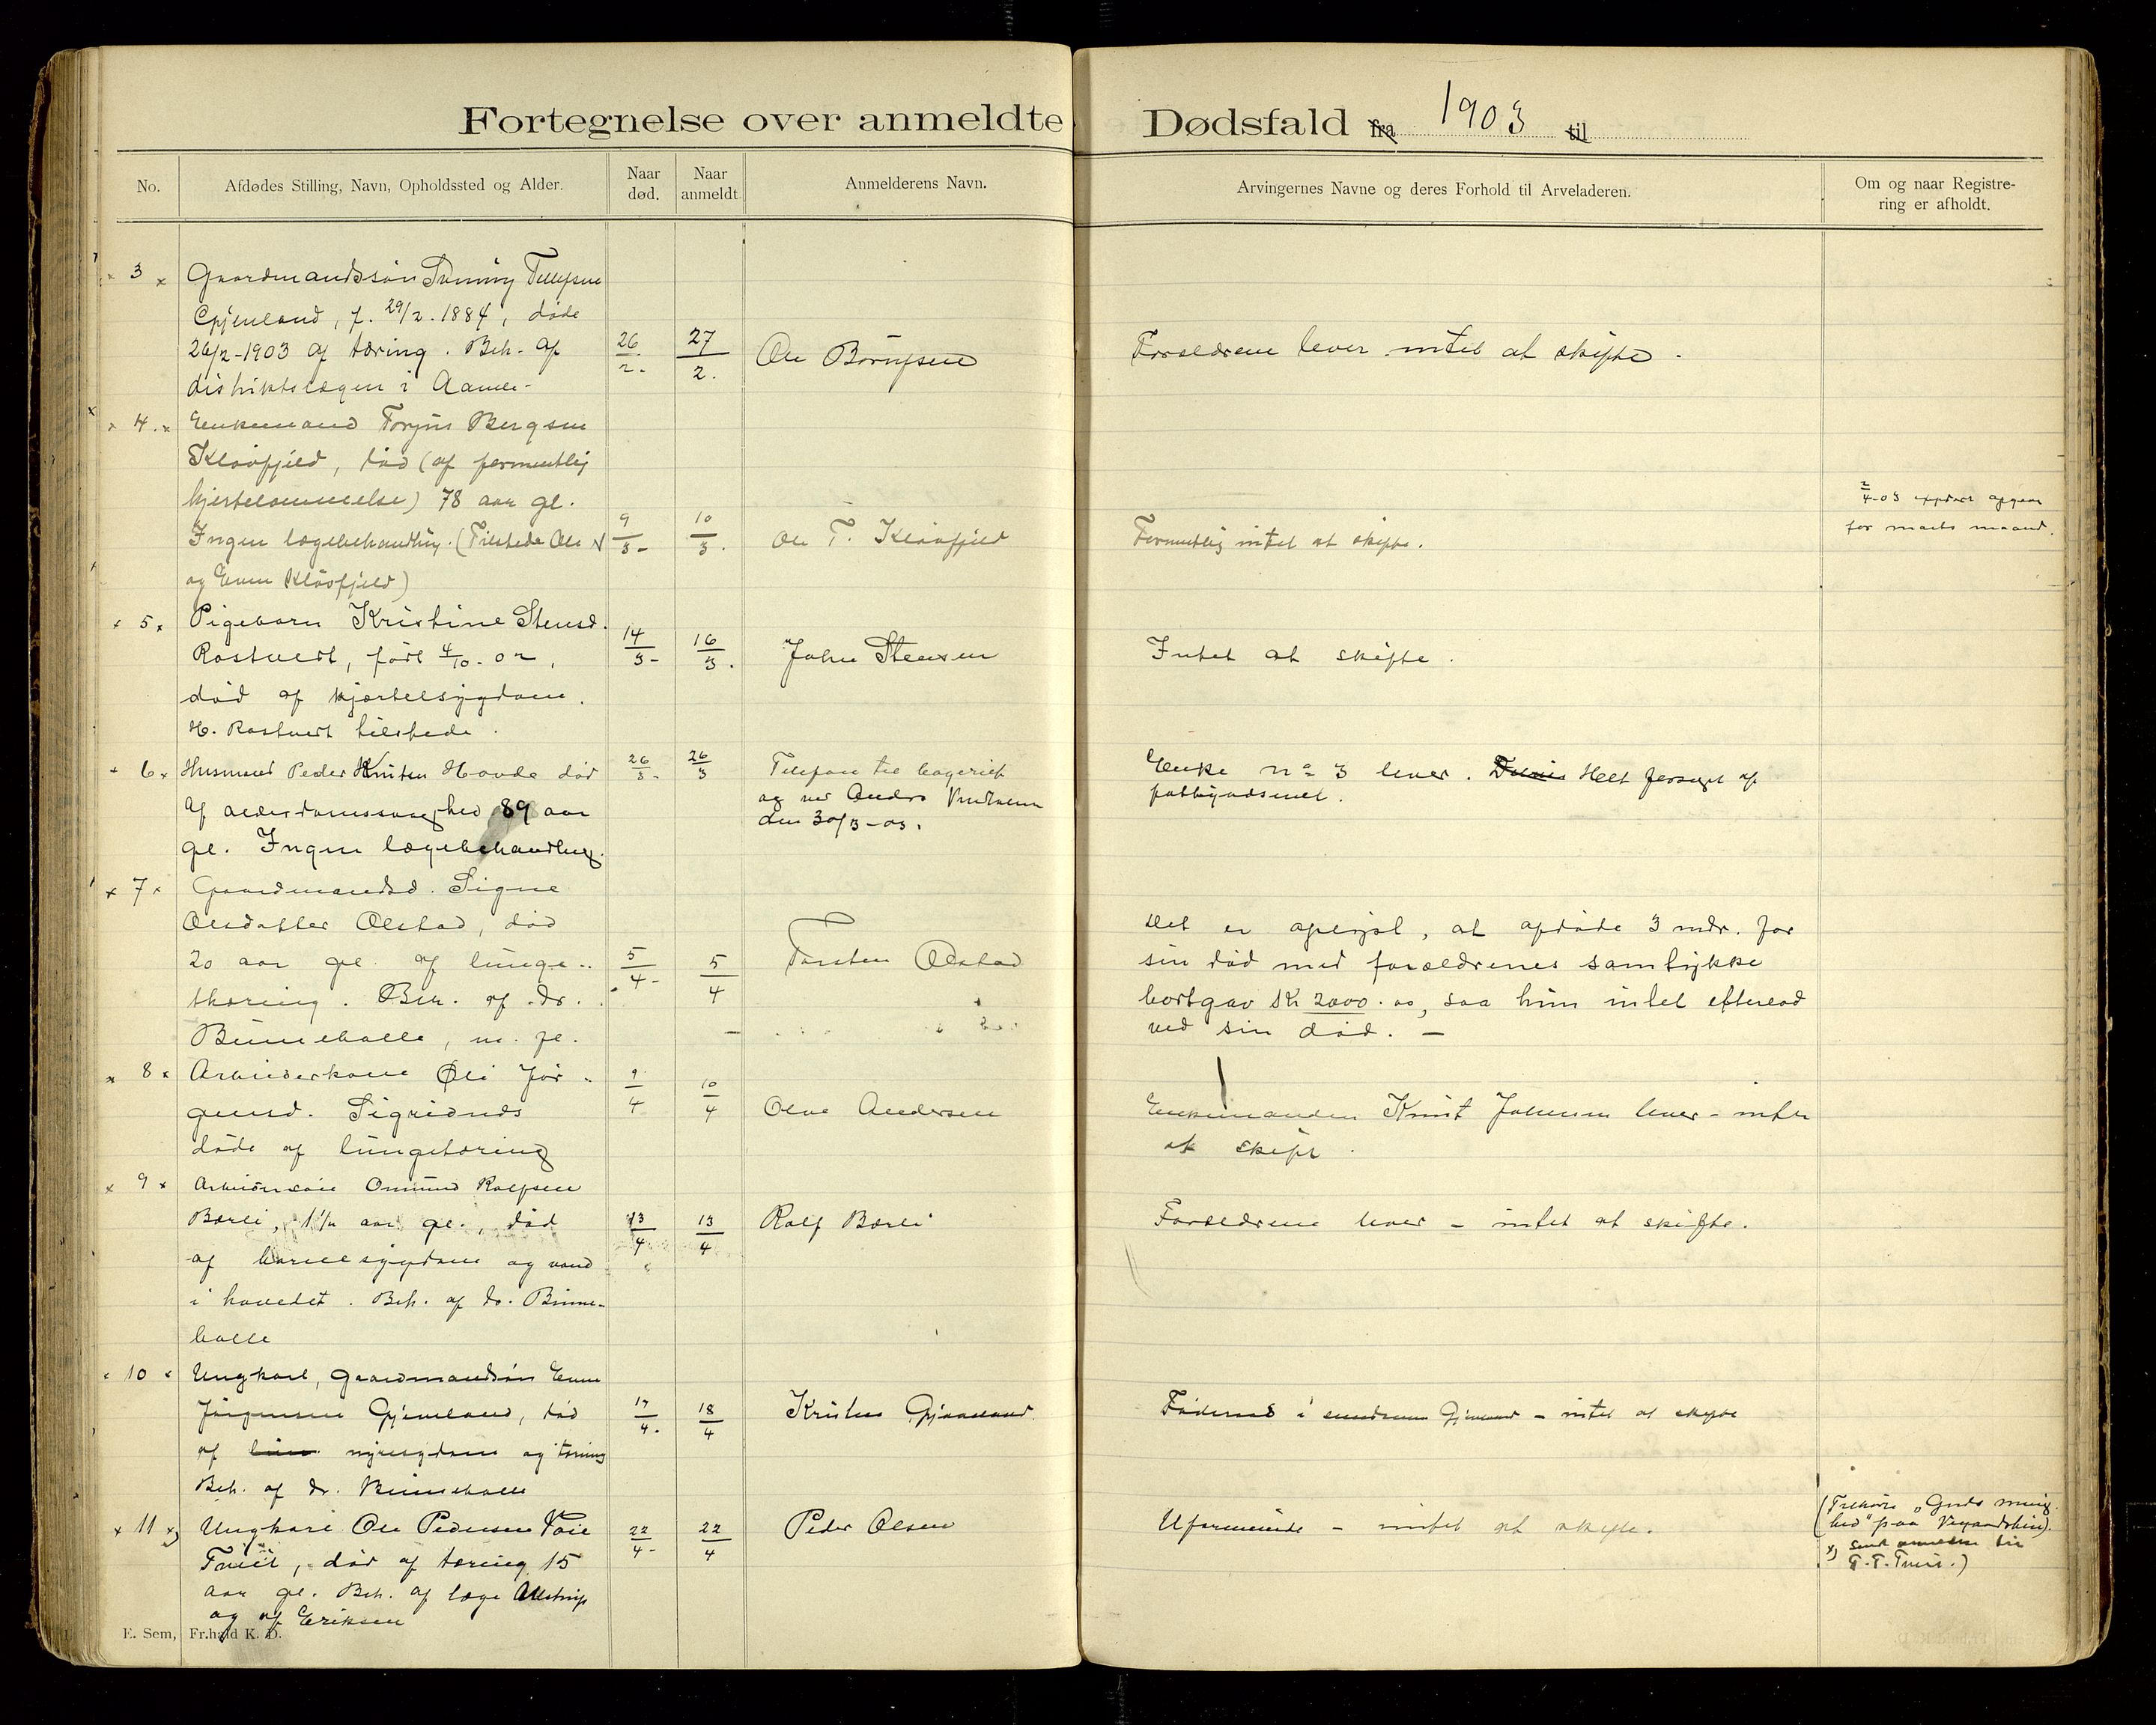 Fortegnelse over anmeldte Dødsfald fra 1903 til
No.
Afdødes Stilling, Navn, Opholdssted og Alder.
Naar død.
Naar anmeldt.
Anmelderens Navn.
Arvingernes Navne og deres Forhold til Arveladeren.
Om og naar Registre-
ring er afholdt.
3 Gaardmandssøn Tellefsen
Gjenland, f. 29/2. 1884, døde
26/2-1903 af tæring. Beh. af
distriktslægen i Aamli-
26/2- 27/2. Ole
Forældrene lever intet at skifte.
4. Enkemand Torjus Bergsen
Kløvfjeld, død (af formentlig
hjertelammelse) 78 aar gl.
Ingen lægebehandling. (Tilstede Ole
og Even Kløvfjeld)
9/3- 10/3. Ole T. Kløvfjeld
Formentlig intet at skifte.
2/4-03 opgave
for marts maaned.
5 Pigebarn Kristine Stensd.
Rostveit, født 4/10-02,
død af kjertelsygdom.
H. Rostveit tilstede.
14/3- 16/3. John Stensen
Intet at skifte.
6 Husmand Peder Knutsen Hovde død
af alderdomssvaghed 89 aar
gl. Ingen lægebehandling.
26/3- 26/3 Telefon til
og ved Anders
den 30/3-03.
Enke no 3 lever. Helt forsørget af
fattigvæsenet.
7 Gaardmandsd. Signe
Olsdatter Ølstad, død
20 aar gl. af lunge-
thæring. Beh. af dr.
Binneballe, m. fl.
5/4- 5/4 Torsten Ølstad
Det er oplyst, at afdøde 3 mdr. før
sin død med forældrenes samtykke
bortgav Kr 2000.00, saa hun intet efterlod
ved sin død. -
8 Arbeiderkone Øli Jør-
gensd. Sigridnes
døde af lungetæring
9/4 10/4 Olva Andersen
Enkemanden Knut Johnsen lever - intet
at skifte.
9 Arbeidersøn Omund Rolfsen
Bærli, 1 1/2 aar gl., død
af barnesygdom og vand
i hovedet. Beh. af dr. Binne-
balle
13/4 13/4 Rolf Bærli
Forældrene lever - intet at skifte.
10 Ungkarl, gaardmandsøn Even
Jørgensen Gjenland, død
af nyresygdom og tæring
Beh. af dr. Binneballe
17/4. 18/4 Kristen
Gjenland - intet at skifte
11 x) Ungkarl Ole Pedersen
død af tæring 15
aar gl. Beh. af læge
og af Eriksen
22/4- 22/4 Peder Olsen
Uformuende - intet at skifte.
(Tilhører "Guds menig-
hed" paa
x) Sendt til
T. T.
E. Sem, Fr.hald K. D.